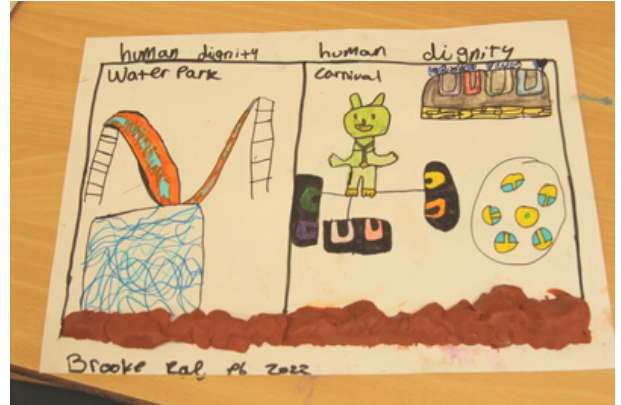 human dignity
human dignity
Water Park
Carnival
Brooke
2022